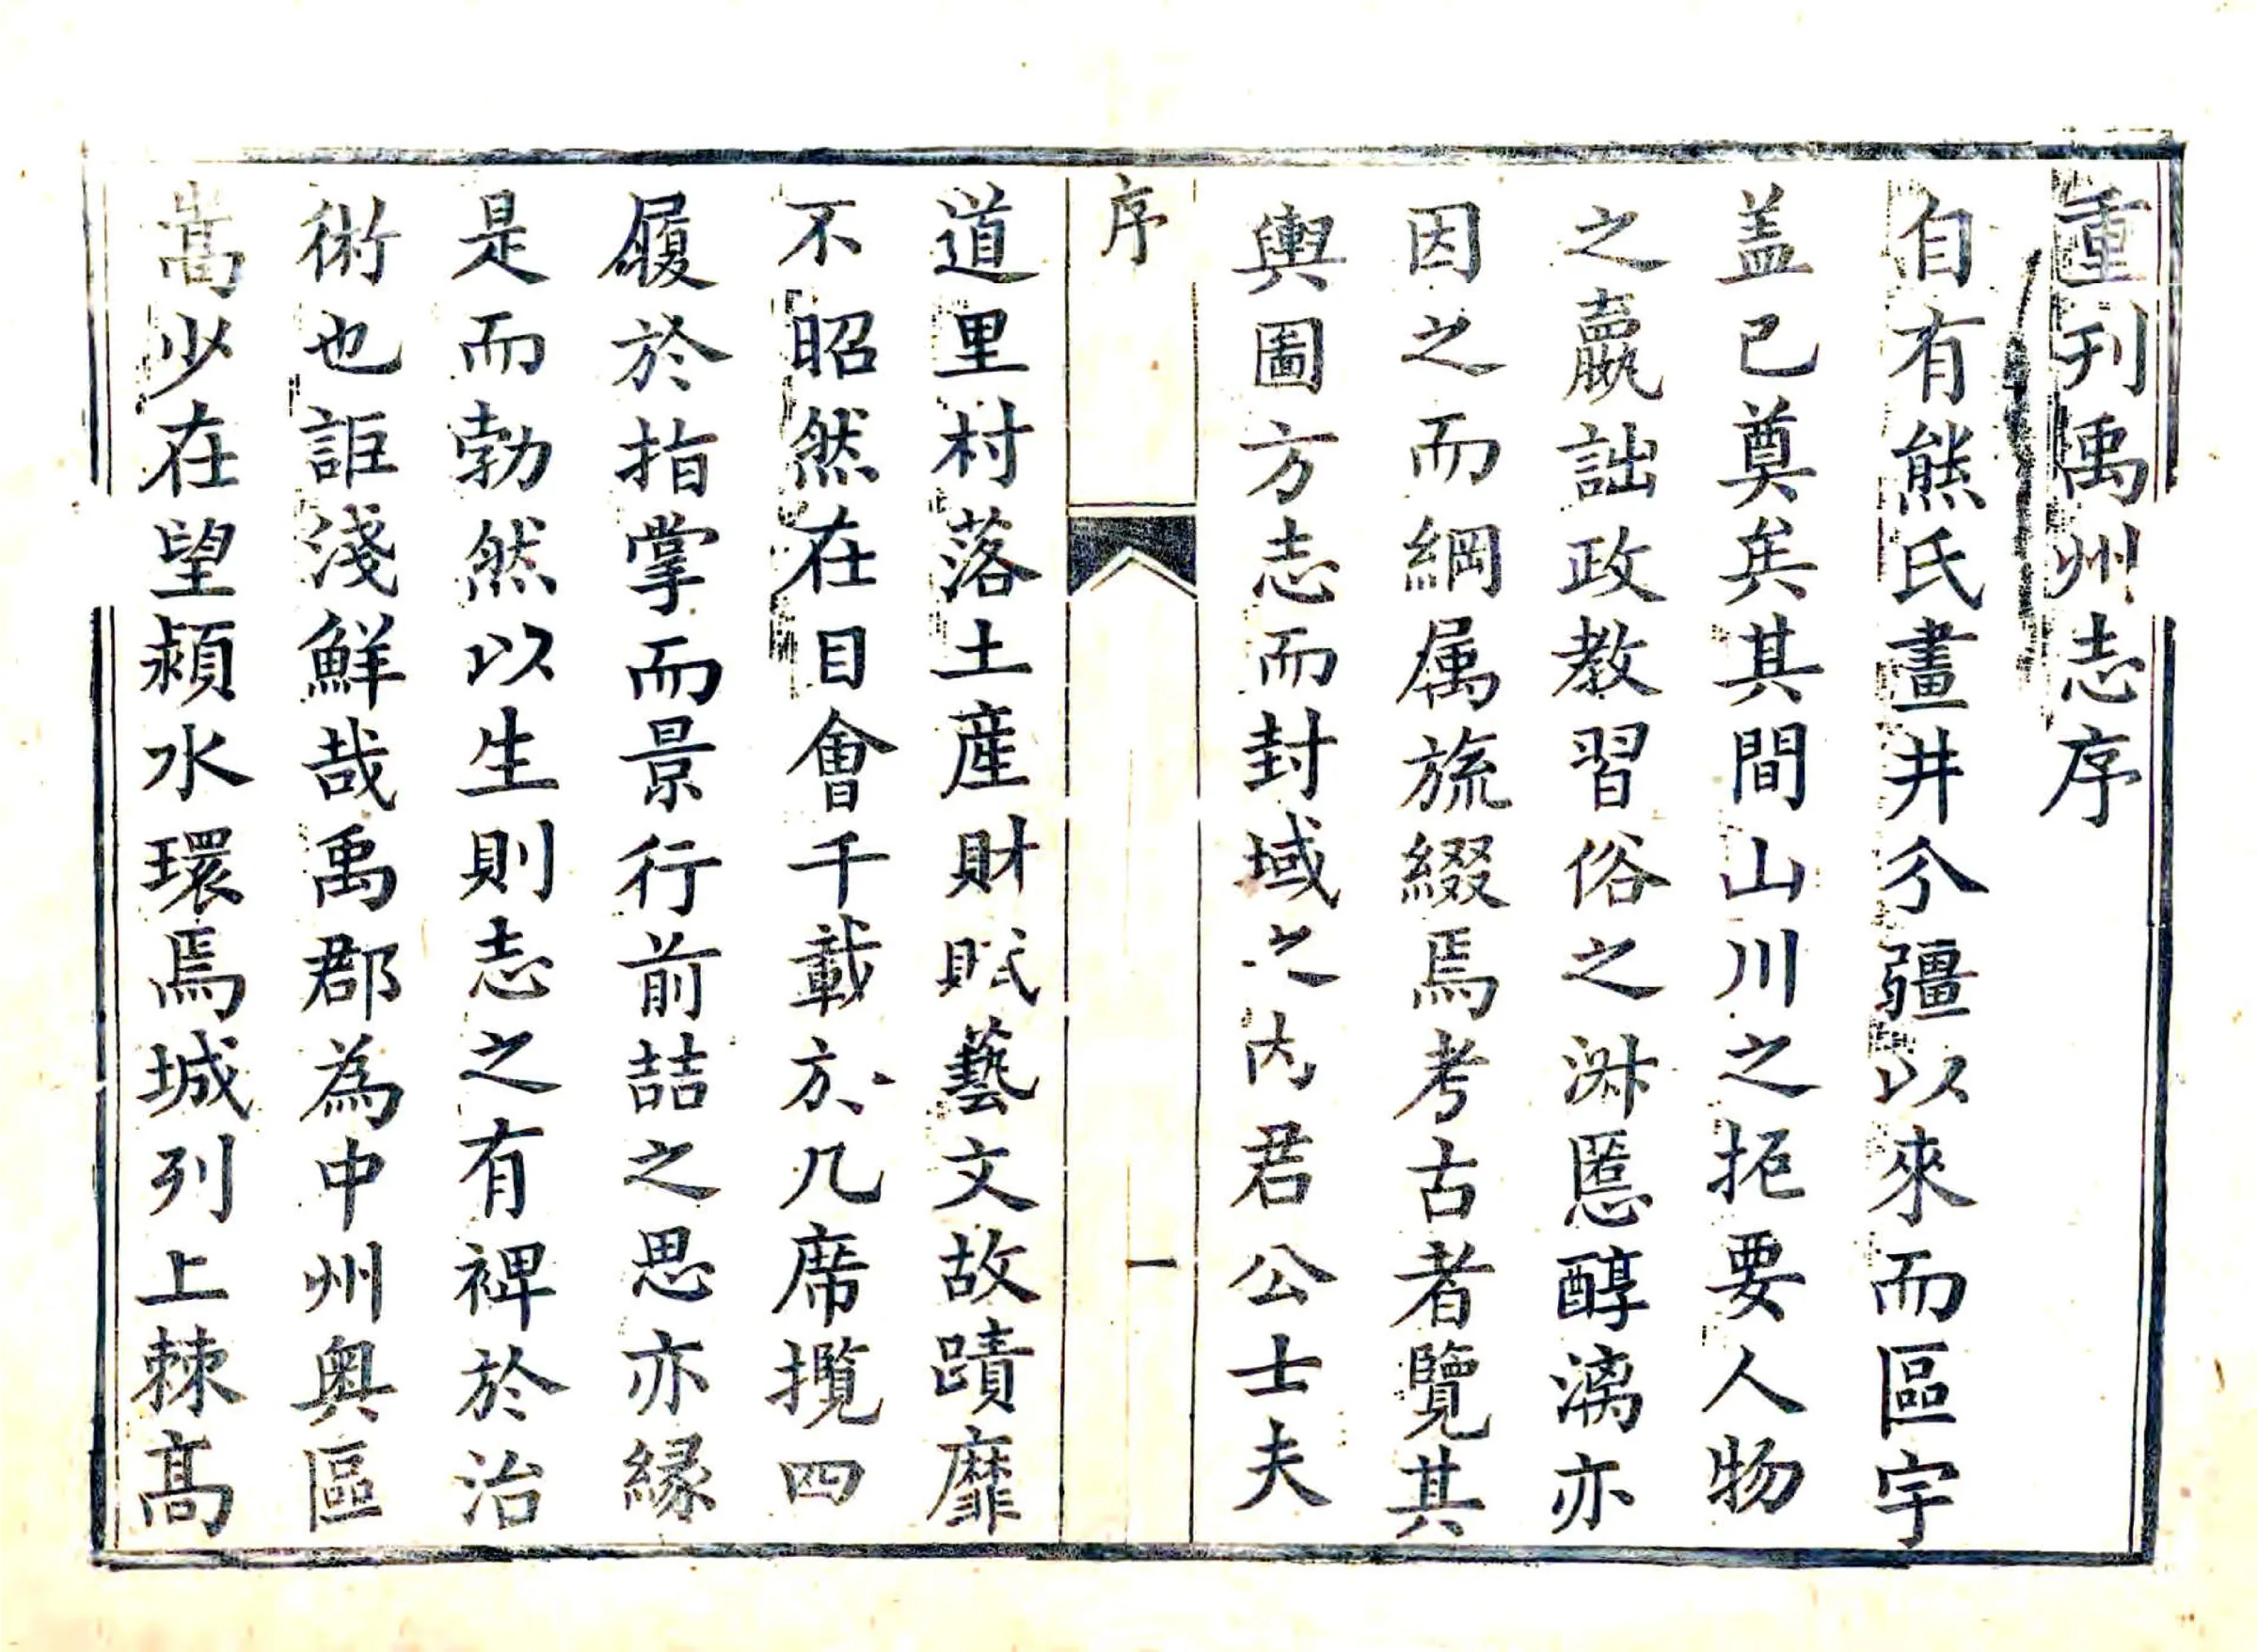 重刊禹州志序
自有熊氏畫井分疆以來而區宇
盖已奠矣其間山川之扼要人物
之嬴詘政教習俗之淑慝醇漓亦
因之而綱属旒綴焉考古者覽其
輿圖方志而封域之內君公士夫
序
一
道里村落土産財賦藝文故蹟靡
不昭然在目會千載於几席攬四
履於指掌而景行前喆之思亦縁
是而勃然以生則志之有裨於治
術也詎淺鮮哉禹郡為中州奥區
嵩少在望潁水環焉城列上棘髙